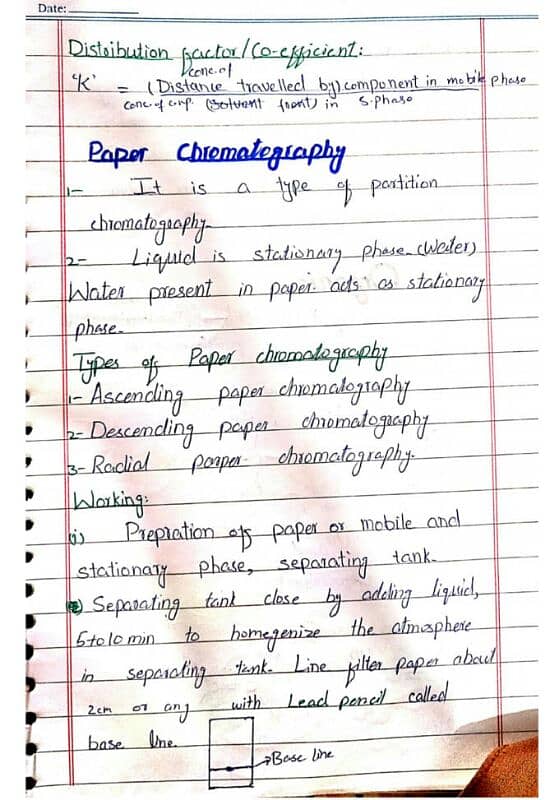 Date:
Distoibution factor/Co-efficient:
conc. of
'K' = (Distance travelled by) component in mobile phase
conc. of cmp. (Solvent front) in S.phase
Paper Chromategraphy
1- It is a type of partition
chromatography.
2- Liquid is stationary phase (Water)
Water present in paper acts as stationary
phase.
Types of Paper chromatography
1- Ascending paper chromatography
2- Descending paper chromatography
3- Radial paper chromatography.
Working:
(i) Prepration of paper or mobile and
stationary phase, separating tank.
Separating tank close by adding liquid,
5 to 10 min to homegenize the atmosphere
in separating tank. Line filter paper about
2cm or any with Lead pencil called
base line.
→Base line